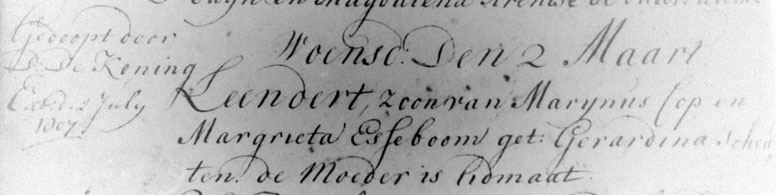 en Magdalena
Gedoopt door
D. De Koning
Extd. 2 July
1807.
Woensd: Den 2 Maart
Leendert, zoon van Marynus Sop en
Margrieta Esseboom get: Gerardina Scheu
ten. de Moeder is Lidmaat.